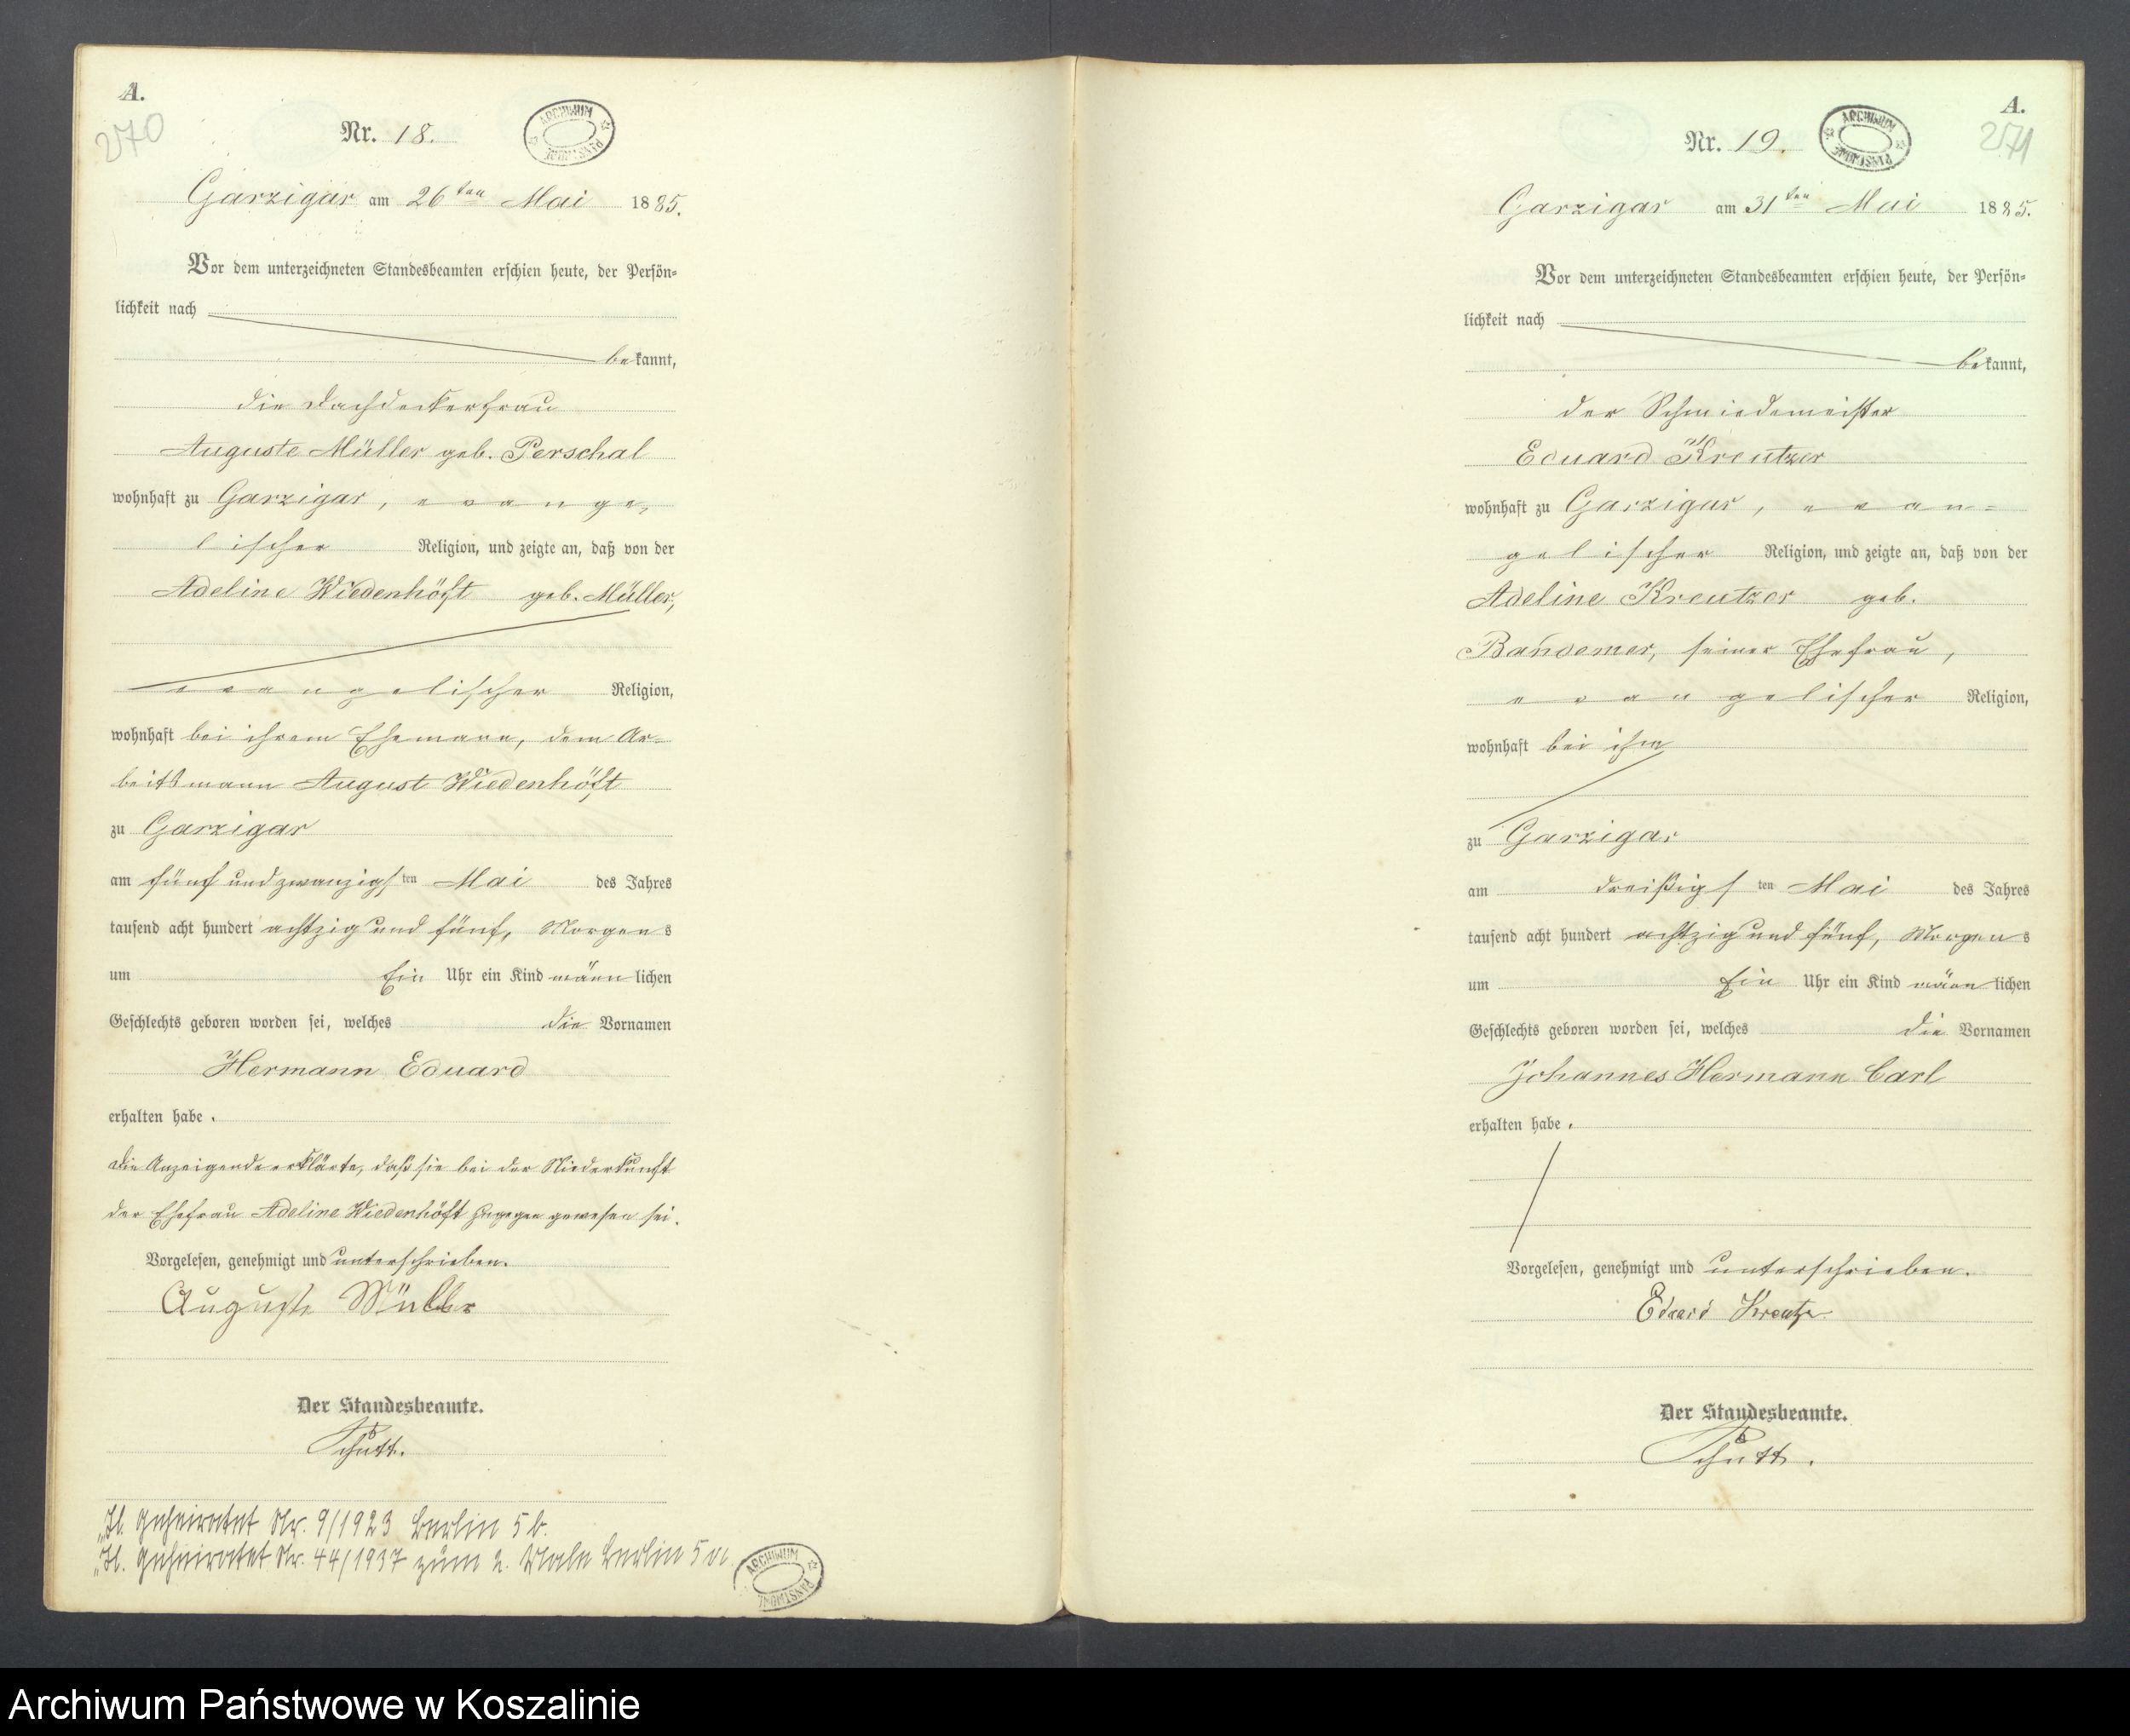 A.
270
Nr. 18.
ARCHIWUM PAŃSTWOWE
Garzigar am 26ten Mai 1885.
Vor dem unterzeichneten Standesbeamten erschien heute, der Persön=
lichkeit nach
bekannt,
die Dachdeckerfrau
Auguste Müller geb. Perschal
wohnhaft zu Garzigar, evange,
lischer Religion, und zeigte an, daß von der
Adeline Wiedenhöft geb. Müller,
evangelischer Religion,
wohnhaft bei ihrem Ehemann, dem Ar=
beitsmann August Wiedenhöft
zu Garzigar
am fünf und zwanzigsten Mai des Jahres
tausend acht hundert achtzig und fünf, Morgens
um Ein Uhr ein Kind männlichen
Geschlechts geboren worden sei, welches die Vornamen
Hermann Eduard
erhalten habe.
Die Anzeigende erklärte, daß sie bei der Niederkunft
der Ehefrau Adeline Wiedenhöft zugegen gewesen sei.
Vorgelesen, genehmigt und unterschrieben.
Auguste Müller
Der Standesbeamte.
Schütt.
„Hl. Geheiratet Nr. 9/1923 Berlin 5b.
„Hl. Geheiratet Nr. 44/1937 zum 2. Male Berlin 5a.
ARCHIWUM PAŃSTWOWE
A.
271
Nr. 19.
ARCHIWUM PAŃSTWOWE
Garzigar am 31ten Mai 1885.
Vor dem unterzeichneten Standesbeamten erschien heute, der Persön=
lichkeit nach
bekannt,
der Schmiedemeister
Eduard Kreutzer
wohnhaft zu Garzigar, evan=
gelischer Religion, und zeigte an, daß von der
Adeline Kreutzer geb.
Bandemer, seiner Ehefrau,
evangelischer Religion,
wohnhaft bei ihm
zu Garzigar
am dreißigsten Mai des Jahres
tausend acht hundert achtzig und fünf, Morgens
um Ein Uhr ein Kind männlichen
Geschlechts geboren worden sei, welches die Vornamen
Johannes Hermann Carl
erhalten habe.
Vorgelesen, genehmigt und unterschrieben.
Eduard Kreutzer
Der Standesbeamte.
Schütt.
Archiwum Państwowe w Koszalinie